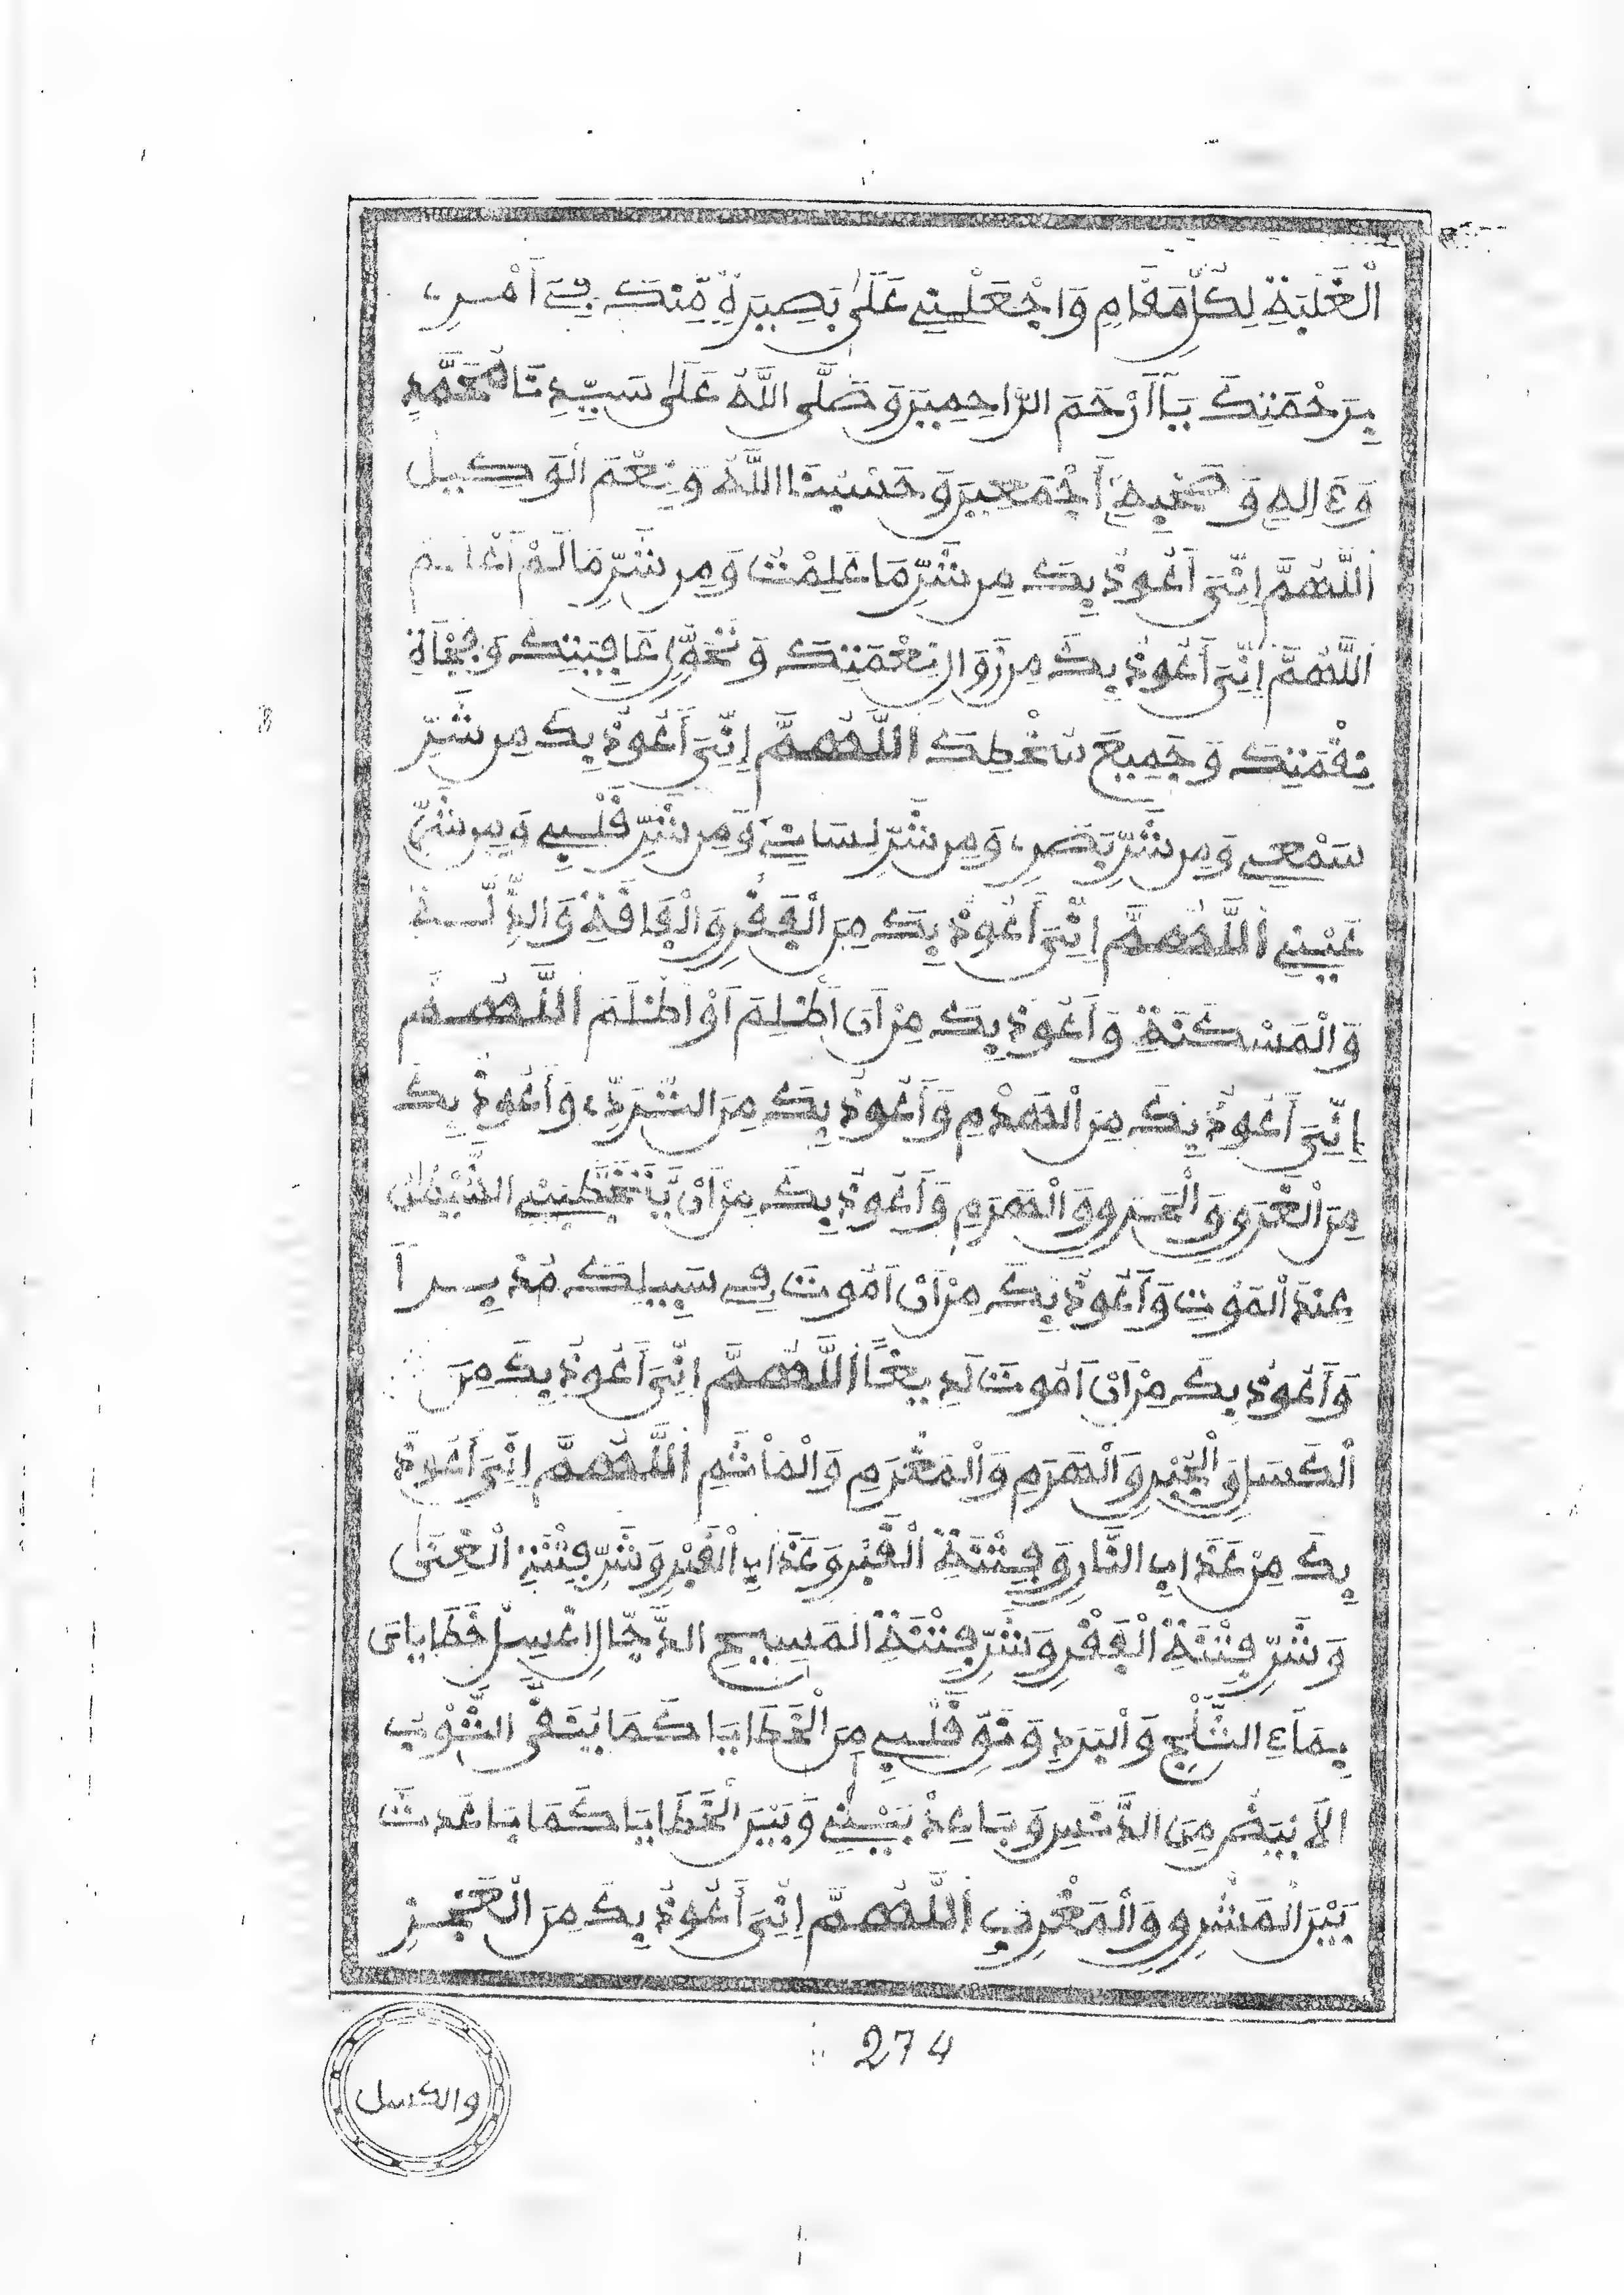 الْغَلَبَةِ لِكُلِّ مَقَامٍ وَاجْعَلْنِي عَلَىٰ بَصِيرَةٍ مِّنكَ فِيَ أَمْرِے
بِرَحْمَتِكَ يَآ أَرْحَمَ الرَّاحِمِينَ وَصَلَّى اللَّهُ عَلَىٰ سَيِّدِنَا مُحَمَّدٍ
وَءَالِهِ وَصَحْبِهِ أَجْمَعِينَ وَحَسْبُنَا اللَّهُ وَنِعْمَ الْوَكِيلُ
اَللَّهُمَّ إِنِّيَ أَعُوذُ بِكَ مِن شَرِّ مَا عَلِمْتُ وَمِن شَرِّ مَا لَمْ أَعْلَمْ
اَللَّهُمَّ إِنِّيَ أَعُوذُ بِكَ مِن زَوَالِ نِعْمَتِكَ وَتَحَوُّلِ عَافِيَتِكَ وَفُجْأَةِ
نِقْمَتِكَ وَجَمِيعِ سَخَطِكَ اللَّهُمَّ إِنِّيَ أَعُوذُ بِكَ مِن شَرِّ
سَمْعِي وَمِن شَرِّ بَصَرِے وَمِن شَرِّ لِسَانِي وَمِن شَرِّ قَلْبِي وَمِن شَرِّ
عَيْنِي اللَّهُمَّ إِنِّيَ أَعُوذُ بِكَ مِنَ الْفَقْرِ وَالْفَاقَةِ وَالذِّلَّةِ
وَالْمَسْكَنَةِ وَأَعُوذُ بِكَ مِنْ أَنْ أَظْلِمَ أَوْ أُظْلَمَ اللَّهُمَّ
إِنِّيَ أَعُوذُ بِكَ مِنَ الْهَدْمِ وَأَعُوذُ بِكَ مِنَ التَّرَدِّے وَأَعُوذُ بِكَ
مِنَ الْغَرَقِ وَالْحَرَقِ وَالْهَرَمِ وَأَعُوذُ بِكَ مِنْ أَنْ يَّتَخَبَّطَنِي الشَّيْطَٰنُ
عِندَ الْمَوْتِ وَأَعُوذُ بِكَ مِنْ أَنْ أَمُوتَ فِي سَبِيلِكَ مُدْبِراً
وَأَعُوذُ بِكَ مِنْ أَنْ أَمُوتَ لَدِيغاً اَللَّهُمَّ إِنِّيَ أَعُوذُ بِكَ مِنَ
الْكَسَلِ وَالْجُبْنِ وَالْهَرَمِ وَالْمَغْرَمِ وَالْمَأْثَمِ اللَّهُمَّ إِنِّيَ أَعُوذُ
بِكَ مِنْ عَذَابِ النَّارِ وَفِتْنَةِ الْقَبْرِ وَعَذَابِ الْقَبْرِ وَشَرِّ فِتْنَةِ الْغِنَىٰ
وَشَرِّ فِتْنَةِ الْفَقْرِ وَشَرِّ فِتْنَةِ الْمَسِيحِ الدَّجَّالِ اغْسِلْ خَطَايَايَ
بِمَآءِ الثَّلْجِ وَالْبَرَدِ وَنَقِّ قَلْبِي مِنَ الْخَطَايَا كَمَا يُنَقَّى الثَّوْبُ
الْأَبْيَضُ مِنَ الدَّنَسِ وَبَاعِدْ بَيْنِي وَبَيْنَ الْخَطَايَا كَمَا بَاعَدتَّ
بَيْنَ الْمَشْرِقِ وَالْمَغْرِبِ اللَّهُمَّ إِنِّيَ أَعُوذُ بِكَ مِنَ الْعَجْزِ
274
والكسل